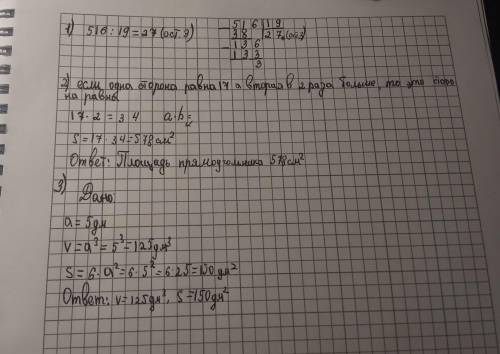 1) 516 : 19 = 27 (ост. 3)
516 | 19
38 | 27 (ост3)
136
133
3
2) если одна сторона равна 17 а вторая в 2 раза больше, то это
на равны
17 · 2 = 34 a · b =
S = 17 · 34 = 578 см²
Ответ: Площадь прямоугольника 578 см²
3)
Дано
a = 5 дм
V = a³ = 5³ = 125 дм³
S = 6 · a² = 6 · 5² = 6 · 25 = 150 дм²
Ответ: V = 125 дм³, S = 150 дм²